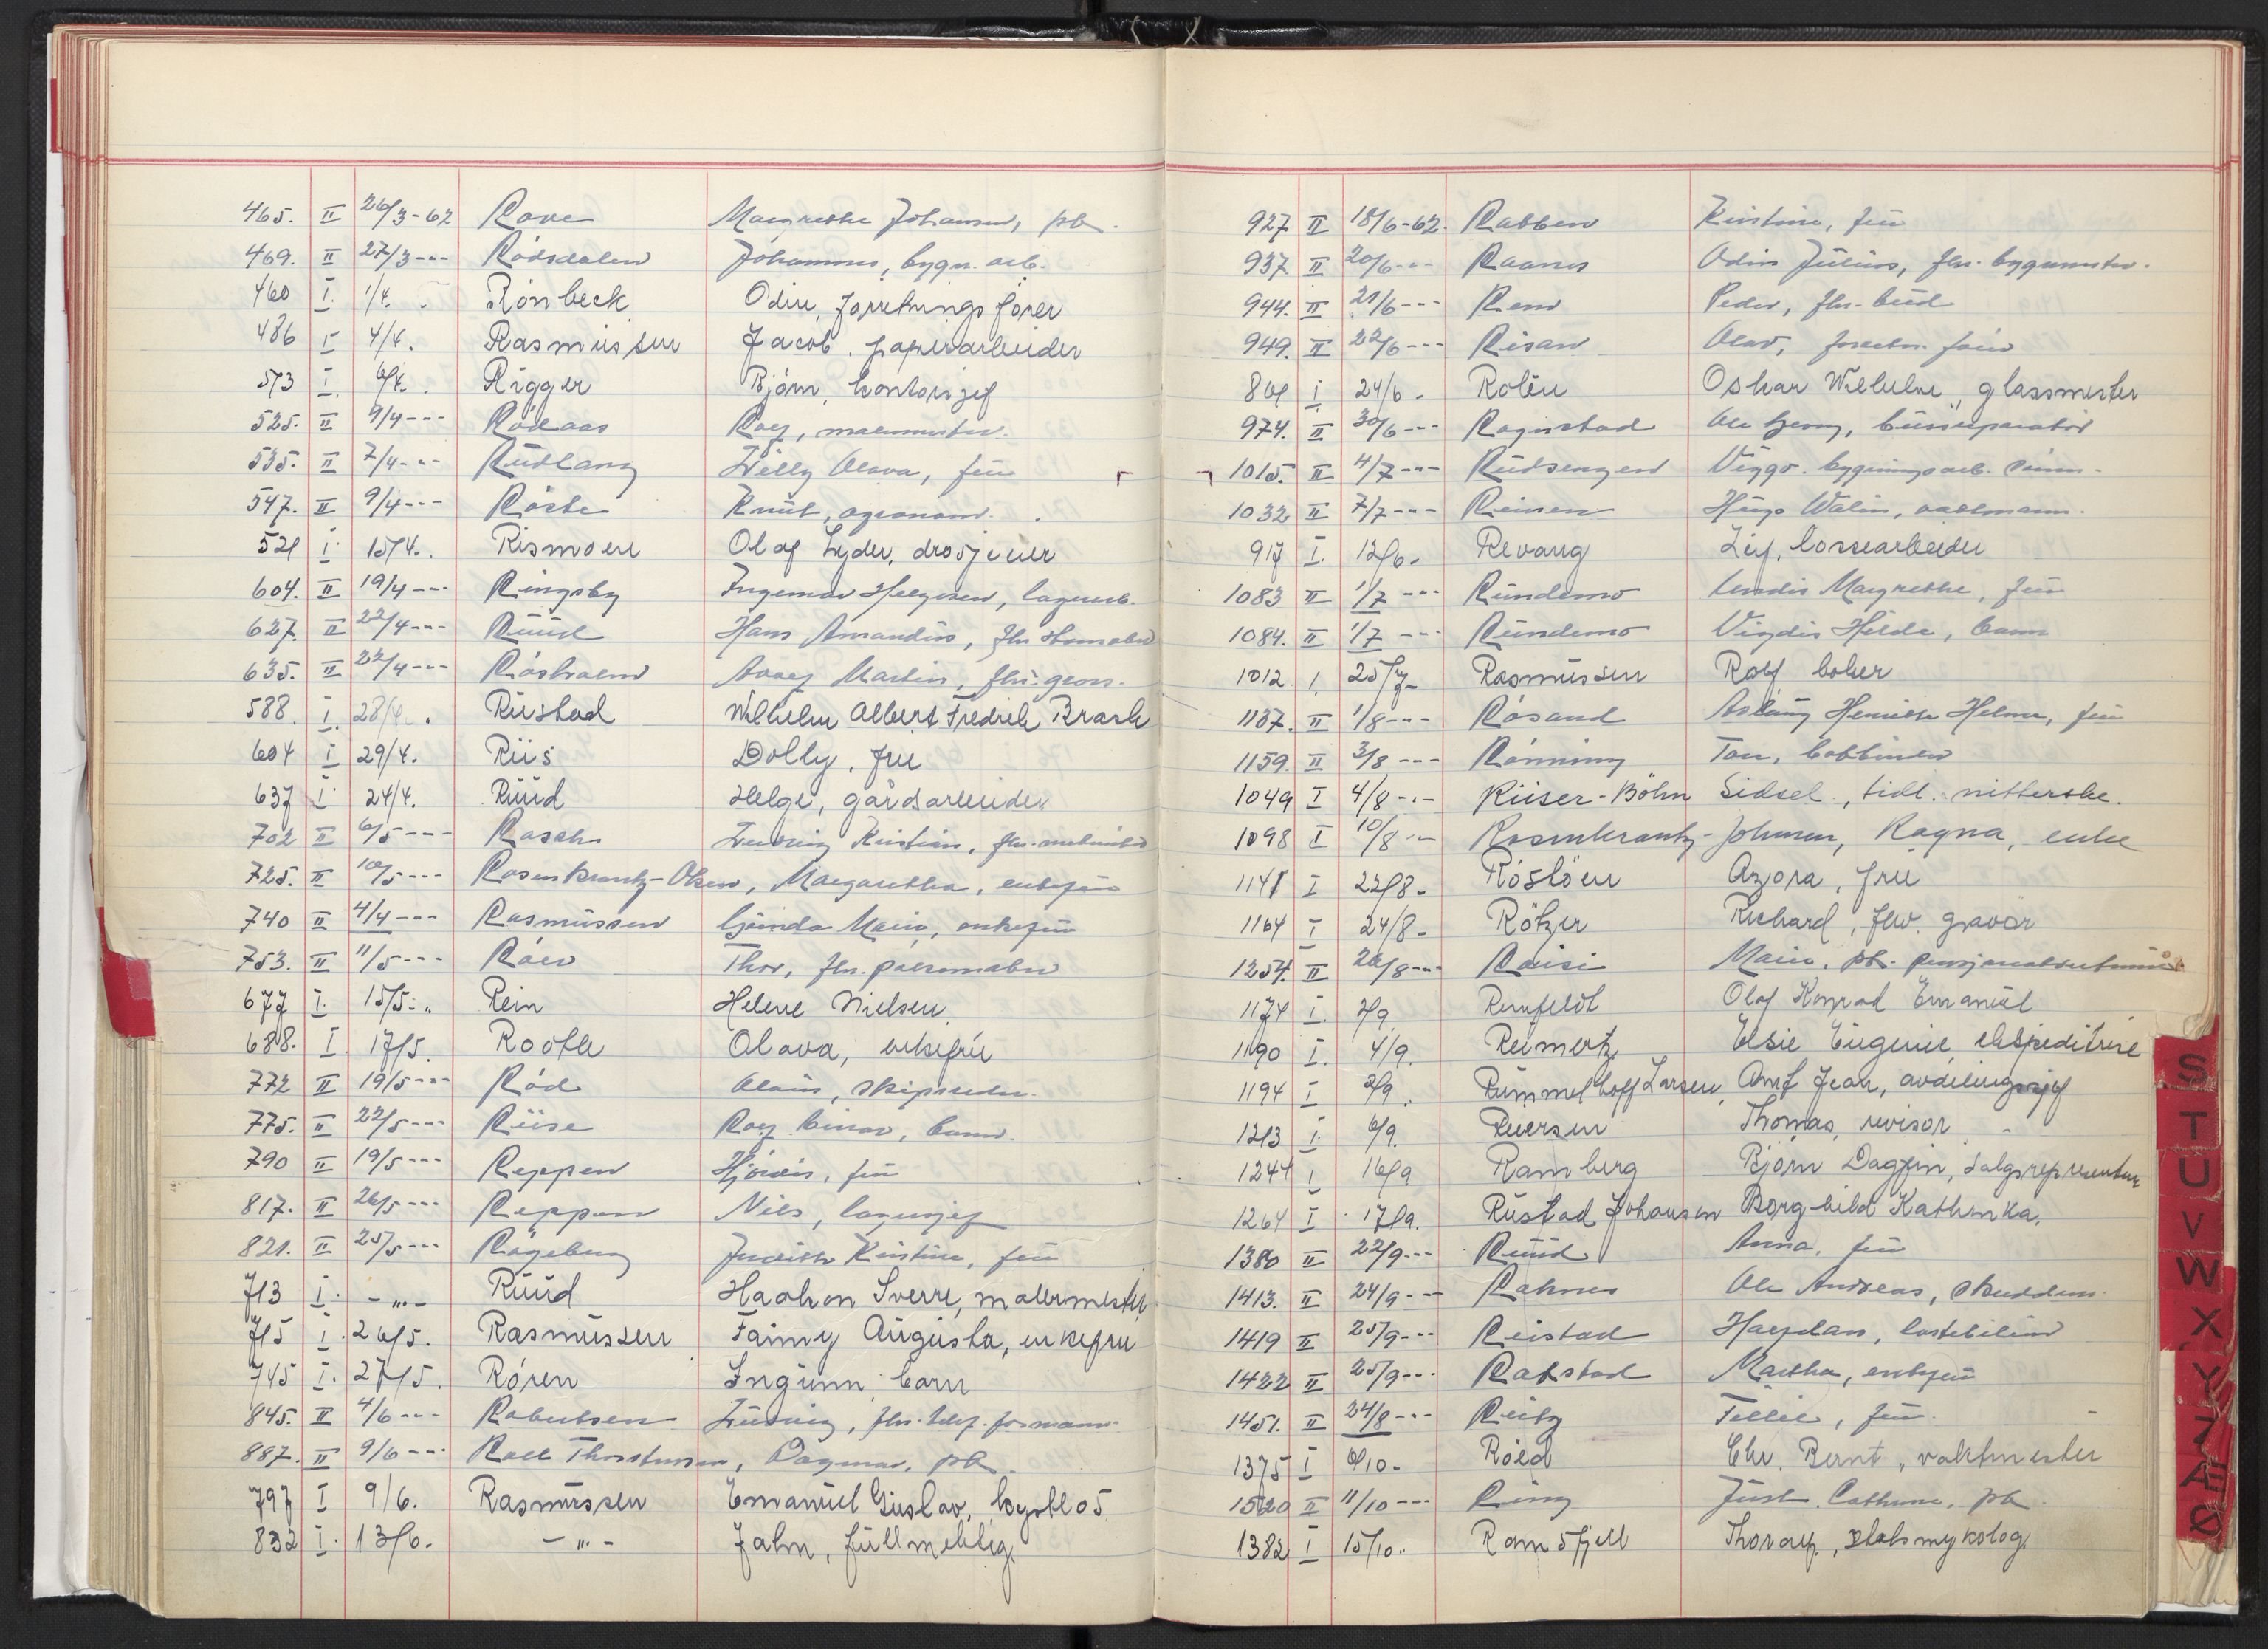 465. II 26/3-62 Rove Margrethe Johansen, pb.
469. II 27/3 --- Rødsdalen Johannes, bygn. arb.
460 I. 1/4. Rönbeck Odin, forretningsfører
486 I 4/4. Rasmüssen Jacob, papirarbeider
513 I. 6/4. Rigger Björn, kontorsjef
525. II 9/4 --- Rödaas Rolf, malermester.
535. II 7/4 --- Rüdlang Willy Olava, frü
547. II 9/4 --- Röste Knüt, agronom.
521 I. 15/4. Rismoen Olaf Lyder, drosjeeier
604. II 19/4 --- Ringsby Ingemar Helgesen, lagerarb.
627. II 22/4 --- Rüüd Hans Amandüs, fhv.
635. II 22/4 --- Røsholm Martin, fhv. gross.
588. I. 28/4. Rüstad Wilhelm Albert Fredrik Brash
604 I 29/4. Riis Dolly, frü
637 I. 24/4. Rüüd Helge, gårdsarbeider
702 II 6/5 --- Rasch Ludvig Kristian, fhv.
725. II 10/5 --- Rosenkrantz-Olsen, Margaretha, enkefrü
740 II 4/4 --- Rasmüssen Marie, enkefrü
753. II 11/5 --- Röer Thor, fhv.
677 I. 15/5. Rein Helene Nielsen
688. I. 17/5. Roothe Olava, enkefrü
772 II 19/5 --- Röd skipsreder.
775. II 22/5 --- Riise Roy Einar, barn.
790 II 19/5 --- Reppen Hjördis, frü
817. II 26/5 --- Reppen Nils, lagersjef
821. II 25/5 --- Rögeberg Judith Kristine, frü
713 I. -"- Rüüd Haakon Sverre, malermester
715 I. 26/5. Rasmüssen Fanny Augüsta, enkefrü
745 I. 27/5. Rören Ingünn, barn
845. II 4/6 --- Robertsen Lüdvig, fhv. telef. formann.
887. II 9/6 --- Roll Thorstensen, Dagmar, pb.
797 I 9/6. Rasmüssen Emanüel Güstav, bystlos
832 I. 13/6. -"- John, füllmektig
927 II 18/6-62. Rabben Kristine, frü
937. II 20/6 --- Raanes Odin Jülius, fhv. byggmester.
944. II 21/6 --- Rem Peder, fhv. büd
949. II 22/6 --- Risan Olav, forretn. fører
861 I 24/6 - Rolén Oskar Wilhelm, glassmester
974. II 30/6 --- Rognstad Ole Georg,
1015. II 4/7 --- Rüdsengen Viggo. bygningsarb.
1032 II 7/7 --- Reinen Hügo Walin, vaktmann.
917 I. 12/6. Revaug Leif, bossearbeider
1083 II 1/7 --- Ründemo Margrethe, frü
1084. II 1/7 --- Ründemo Vigdis Hilde, barn
1012 I. 25/7 - Rasmüssen Rolf baker
1137. II 1/8 --- Rösand Aslaüg Henriette Helene, frü
1159. II 3/8 --- Rönning Tom,
1049 I 4/8 --- Riiser-Böhn Sidsel, tidl. sütterske.
1098 I 10/8 --- Rosenkrantz-Johnsen, Ragna, enke
1141 I 22/8. Röslöen Azora, frü
1164 I 24/8. Rötzer Richard, fhv. gravör
1254. II 26/8 --- Raisi Marie, pb.
1174 I. 2/9 Renfeldt Olaf Konrad Emanüel
1190 I. 4/9. Reimertz Elsie Eügenie, ekspeditrise
1194 I 2/9. Rümmelhoff Larsen, Arnt Jean, avdelingssjef
1213 I. 6/9. Thomas, revisor
1244 I 16/9 Ramberg Björn Dagfin, salgsrepresentan
1264 I 17/9. Rüstad Johansen Borghild Kathinka,
1380 II 22/9 --- Rüüd Anna, frü
1413. II 24/9 --- Raknes Ole Andreas,
1419 II 25/9 --- Reistad Halfdan, lastebileier
1422 II 25/9 --- Rakstad Martha, enkefrü
1451. II 24/8 --- Reitz Tillie, frü.
1375 I 6/10. Röed Chr. Bernt, vaktmester
1520 II 11/10 --- Ring Cathrine, pb.
1382 I 15/10. Ramsfjell Thoralf, statsmykolog
S
T
U
V
W
X
Y
Z
Æ
Ø